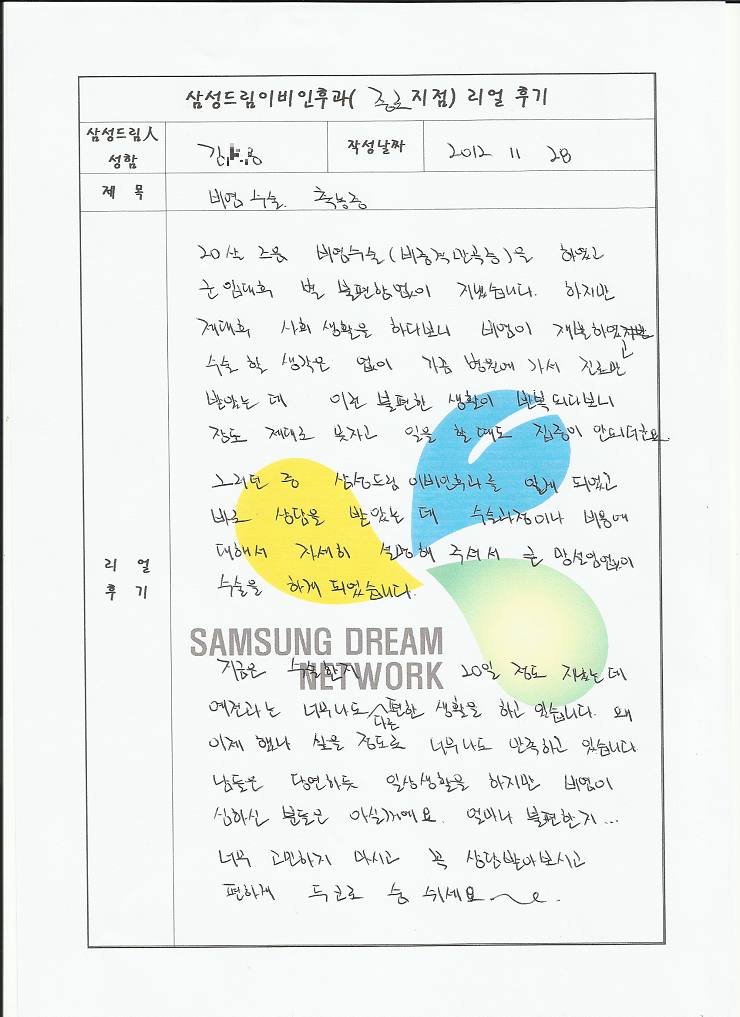 삼성드림이비인후과( 종로지점) 리얼 후기
삼성드림人 성함
작성날짜 2012 11 28
제 목 비염 수술. 축농증
리 얼 후 기
20살 즈음 비염수술(비중격만곡증)을 하였고
군 입대후 별 불편함없이 지냈습니다. 하지만
제대후 사회 생활을 하다보니 비염이 재발하였고
수술 할 생각은 없이 가끔 병원에 가서 진료만
받았는 데 이런 불편한 생활이 반복되다보니
잠도 제대로 못자고 일을 할 때도 집중이 안되더군요.
그러던 중 삼성드림 이비인후과를 알게 되었고
바로 상담을 받았는 데 수술과정이나 비용에
대해서 자세히 설명해 주셔서 큰 망설임없이
수술을 하게 되었습니다.
SAMSUNG DREAM
NETWORK
지금은 수술한지 20일 정도 지났는데
예전과는 너무나도 다른 편한 생활을 하고 있습니다. 왜
이제 했나 싶을 정도로 너무나도 만족하고 있습니다
남들은 당연하듯 일상생활을 하지만 비염이
심하신 분들은 아실꺼에요. 얼마나 불편한지...
너무 고민하지 마시고 꼭 상담받아보시고
편하게 두 코로 숨 쉬세요~